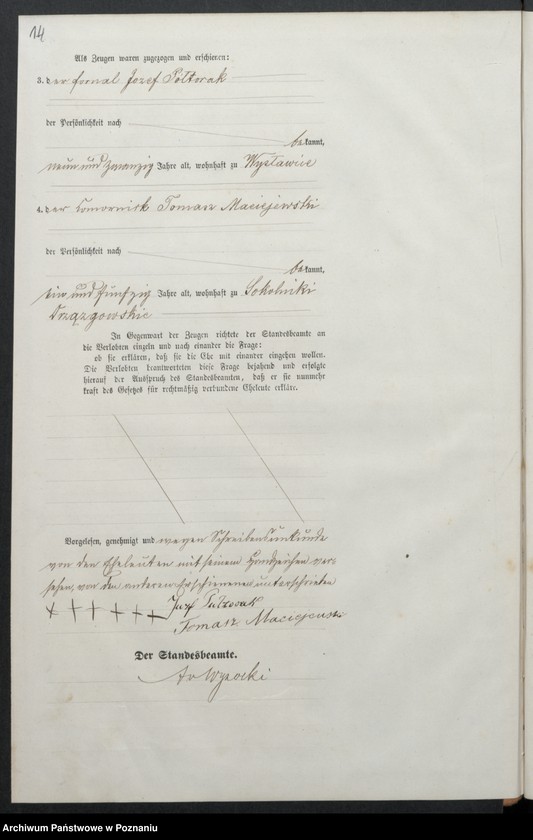 14
Als Zeugen waren zugezogen und erschienen:
3. der fornal Jozef Poltorak
der Persönlichkeit nach
bekannt,
neun und zwanzig Jahre alt, wohnhaft zu Wysławice
4. der Komornick Tomasz Maciejewski
der Persönlichkeit nach
bekannt,
ein und fünfzig Jahre alt, wohnhaft zu Sokolniki
Drzązgowskie
In Gegenwart der Zeugen richtete der Standesbeamte an
die Verlobten einzeln und nach einander die Frage:
ob sie erklären, daß sie die Ehe mit einander eingehen wollen.
Die Verlobten beantworteten diese Frage bejahend und erfolgte
hierauf der Ausspruch des Standesbeamten, daß er sie nunmehr
kraft des Gesetzes für rechtmäßig verbundene Eheleute erkläre.
Vorgelesen, genehmigt und wegen Schreibensunkunde
von den Eheleuten mit seinem Handzeichen ver
sehen, von den anderen Erschienenen unterschrieben
+ + + + + +
Juzf Pulzorak
Tomasz Maciejewski
Der Standesbeamte.
Wysocki
Archiwum Państwowe w Poznaniu